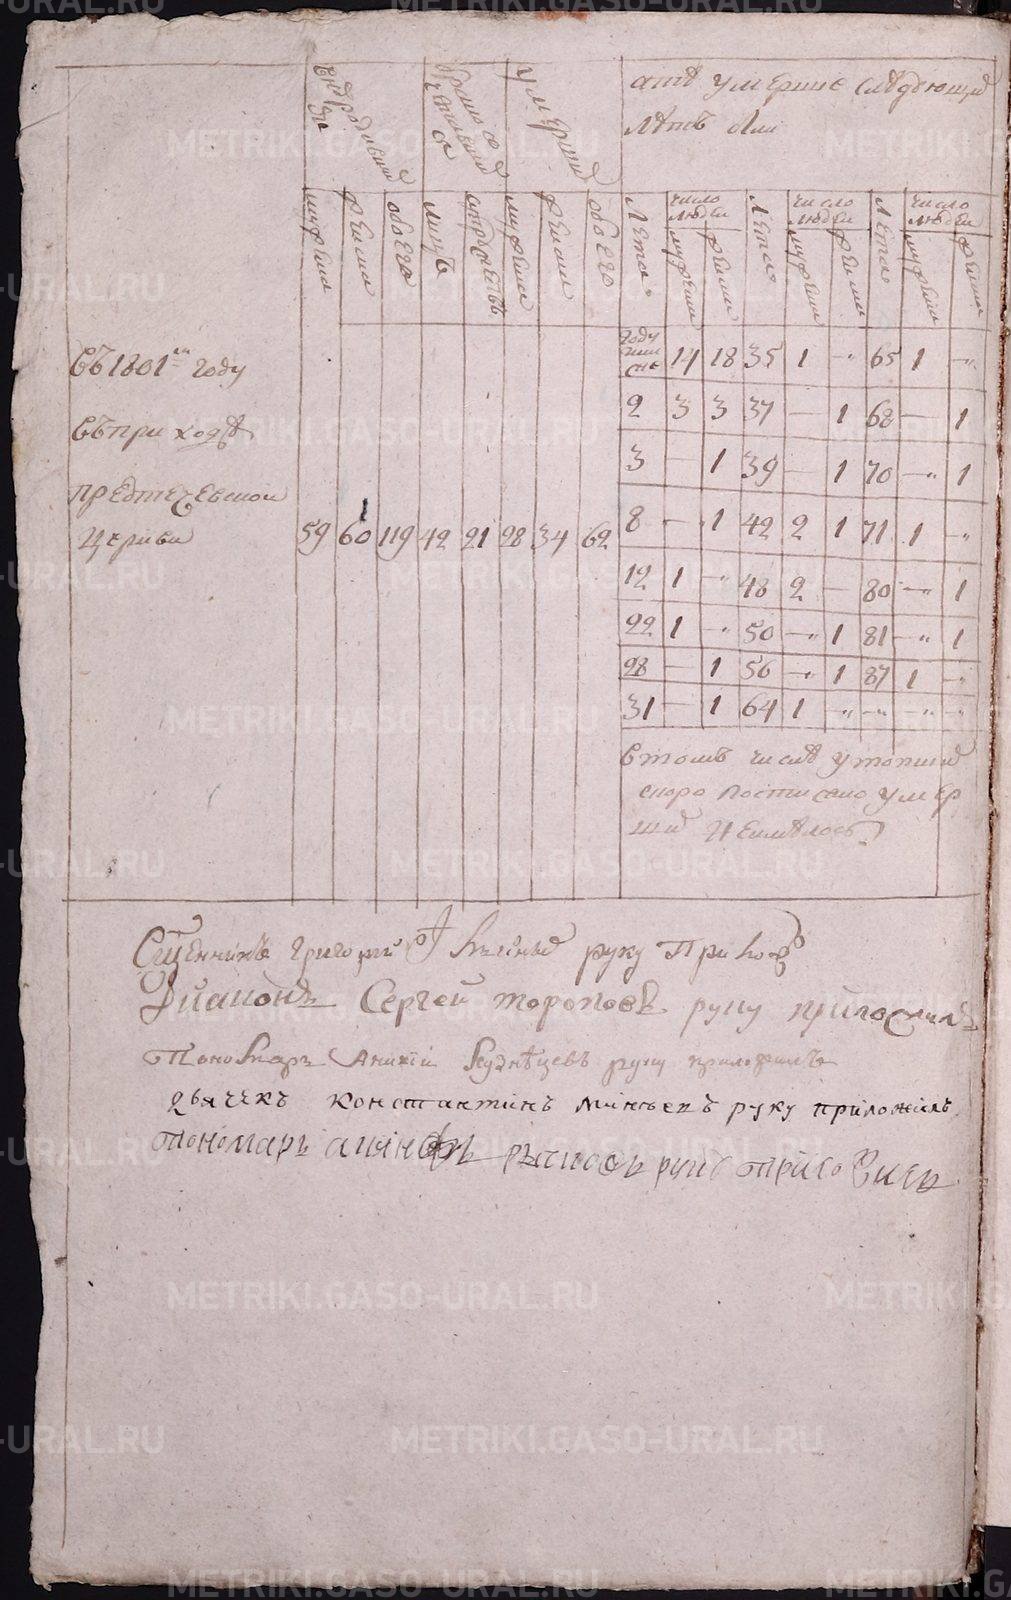 умерших
а тѣ умершие слѣдующих
лѣтъ были
мужеска
женска
обоего
лицъ
мужеска
женска
обоего
Лета
число людей
мужеска
женска
Лета
число людей
мужеска
женска
Лета
число людей
мужеска
женска
году 14 18 35 1 -„ 65 1 -„
2 3 3 37 — 1 68 — 1
3 — 1 39 — 1 70 -„ 1
8 — 1 42 2 1 71 1 -„
12 1 -„ 48 2 — 80 -„ 1
22 1 -„ 50 -„ 1 81 -„ 1
28 — 1 56 -„ 1 87 1 -„
31 — 1 64 1 -„ -„ -„ -„
Въ 1801м году
въ приходѣ
предтечевской
церкви 59 60 119 42 21 28 34 62
в томъ числѣ утопших
скоропостижно умер
ших неимѣлось
Сщенникъ Григорий руку Приложилъ
Диаконъ Сергей Тороповъ руку приложилъ
Пономарь Аникий Кузнѣцовъ руку приложилъ
дьячекъ константинъ руку приложилъ
пономарь руку приложилъ
METRIKI.GASO-URAL.RU